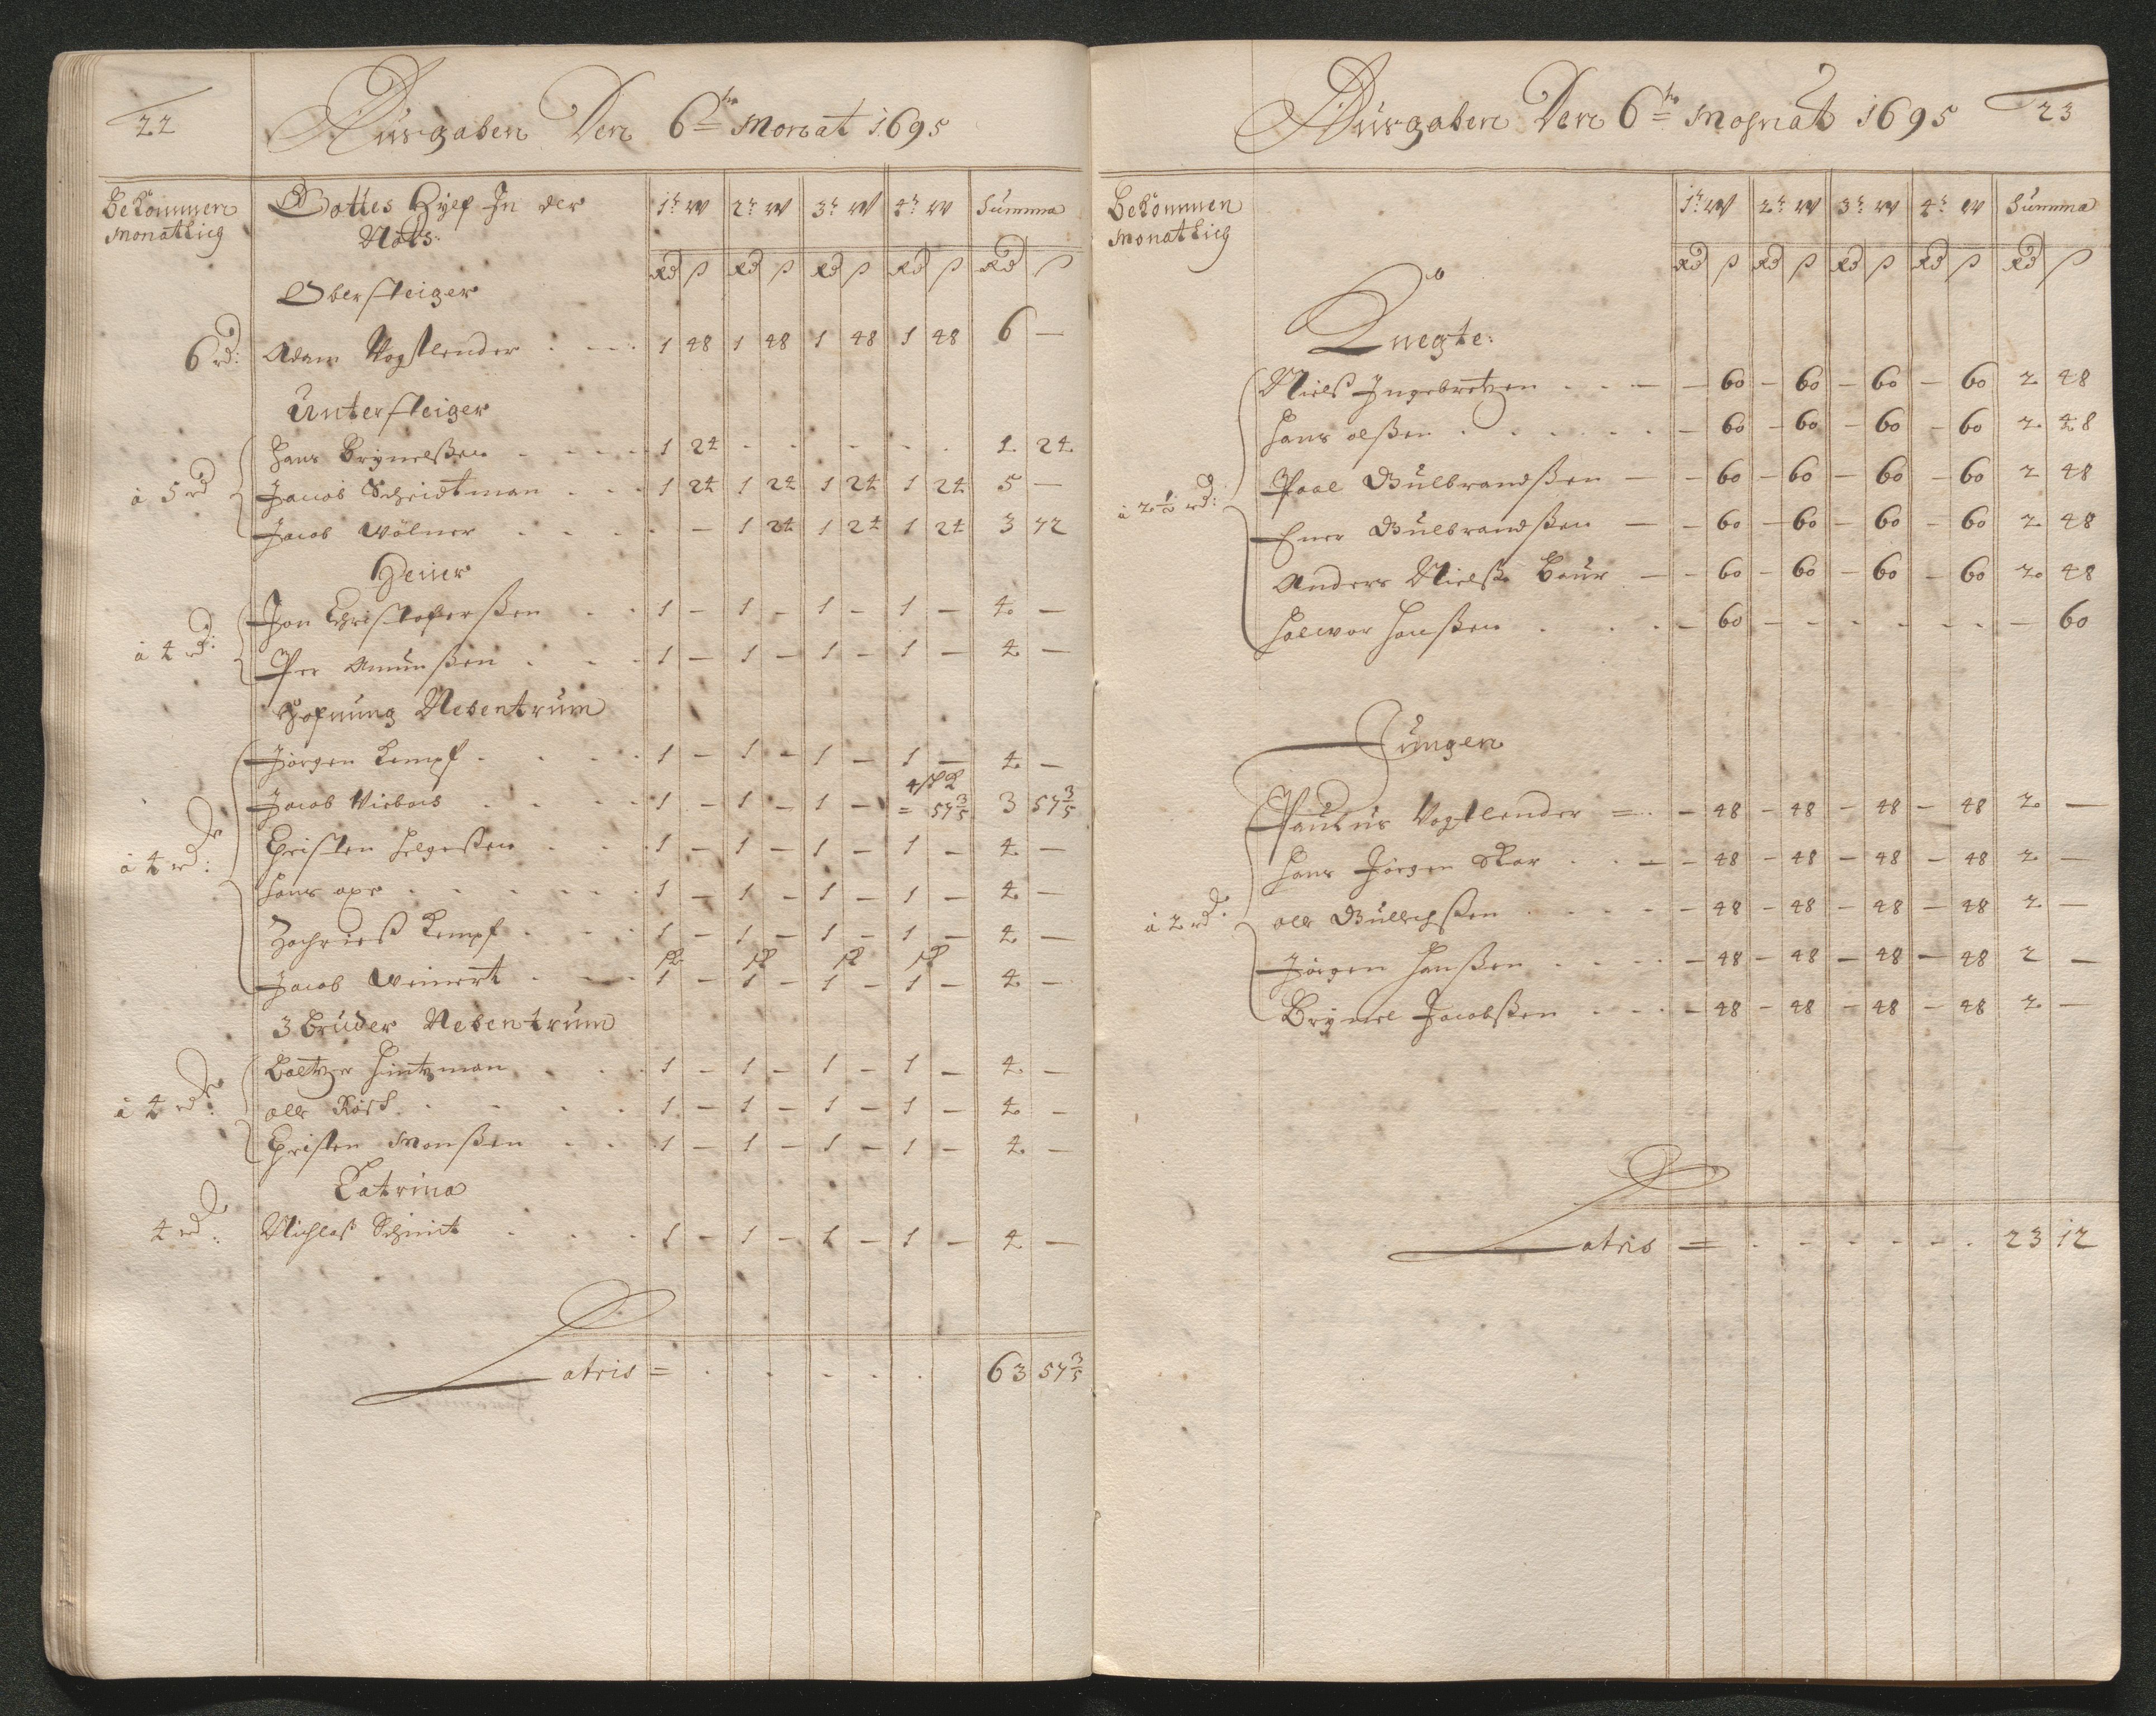 22
Ausgaben Den 6ten Monat 1695
Bekommen Monatlich
Gottes Hylf In der Nohs
1r W 2r W 3r W 4r W Summa
Rd ß Rd ß Rd ß Rd ß Rd ß
Obersteiger
6 rd: Adam Vogtlender 1 48 1 48 1 48 1 48 6 —
Untersteiger
Hans Brynelßen 1 24 - - - - - - 1 24
à 5 rd Jacob Scheidtman 1 24 1 24 1 24 1 24 5 —
Jacob Wölner - - 1 24 1 24 1 24 3 72
Heuer
Jon Christofferßen 1 – 1 – 1 – 1 – 4 —
à 4 rd: Per Amunßen 1 – 1 – 1 – 1 – 4 —
Hofnung Nebentrum
Jörgen Kempf 1 – 1 – 1 – 1 – 4 —
Jacob 1 – 1 – 1 – = 57 3/5 3 57 3/5
à 4 rd: Christen Helgeßen 1 – 1 – 1 – 1 – 4 —
Hans 1 – 1 – 1 – 1 – 4 —
Zachrieß Kempf 1 – 1 – 1 – 1 – 4 —
Jacob Weinert 1 – 1 – 1 – 1 – 4 —
3 Bruder Nebentrum
Baltzer Hintzman 1 – 1 – 1 – 1 – 4 —
à 4 rd: Ole 1 – 1 – 1 – 1 – 4 —
Christen Monßen 1 – 1 – 1 – 1 – 4 —
Catrina
4 rd: Nichlas Schmit 1 – 1 – 1 – 1 – 4 —
Latris = 63 57 3/5
Ausgaben Den 6ten Monat 1695 23
Bekommen Monatlich
1r W 2r W 3r W 4r W Summa
Rd ß Rd ß Rd ß Rd ß Rd ß
Knegte:
Nielß Ingebretzen – 60 – 60 – 60 – 60 2 48
Hans Olßen – 60 – 60 – 60 – 60 2 48
à 2 1/2 rd: Poal Gulbrandßen – 60 – 60 – 60 – 60 2 48
Ener Gulbrandßen – 60 – 60 – 60 – 60 2 48
Anders Nielß Baur – 60 – 60 – 60 – 60 2 48
Halvor Hanßen – 60 – - - - - - – 60
Jungen
Paulus Vogtlender = – 48 – 48 – 48 – 48 2 —
Hans Jörgen Skar – 48 – 48 – 48 – 48 2 —
à 2 rd: Ole – 48 – 48 – 48 – 48 2 —
Jörgen Hanßen – 48 – 48 – 48 – 48 2 —
Brynel Jacobßen – 48 – 48 – 48 – 48 2 —
Latris = 23 12